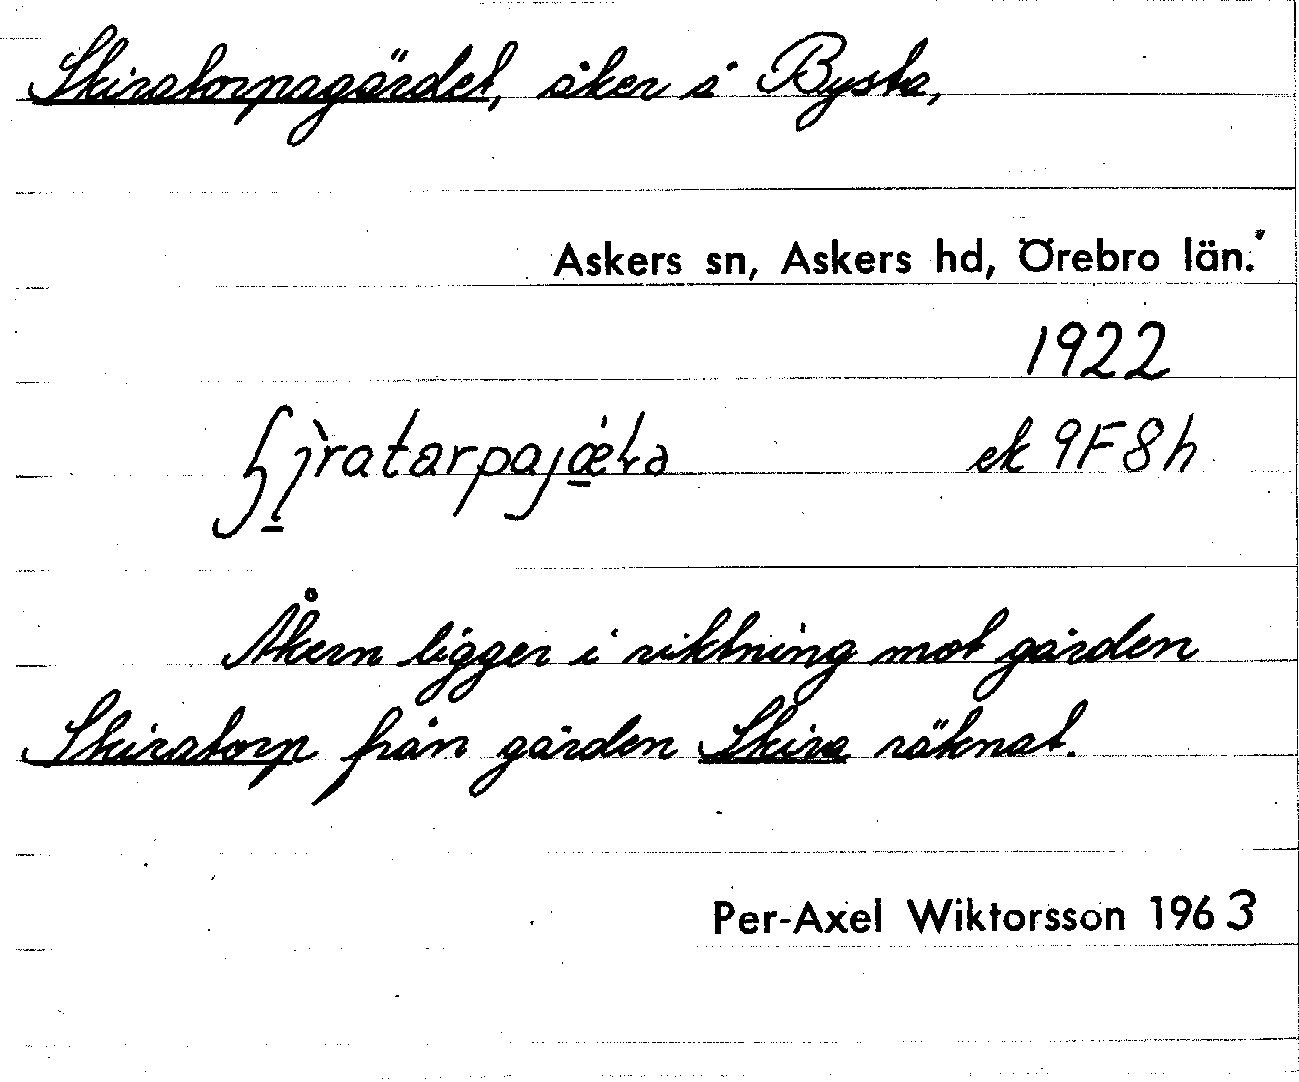 Skiratorpagärdet, åker i Bysta,
Askers sn, Askers hd, Örebro län.
1922
ek 9F8h
Åkern ligger i riktning mot gården
Skiratorp från gården Skira räknat.
Per-Axel Wiktorsson 1963